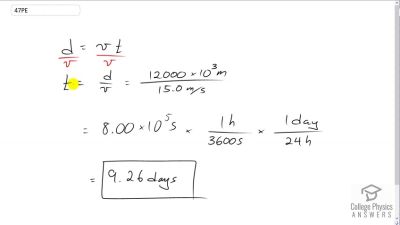 47PE
d/v = vt/v
t = d/v = 12000 × 10³ m / 15.0 m/s
= 8.00 × 10⁵ s × 1h/3600s × 1day/24h
= 9.26 days
College Physics
ANSWERS.com